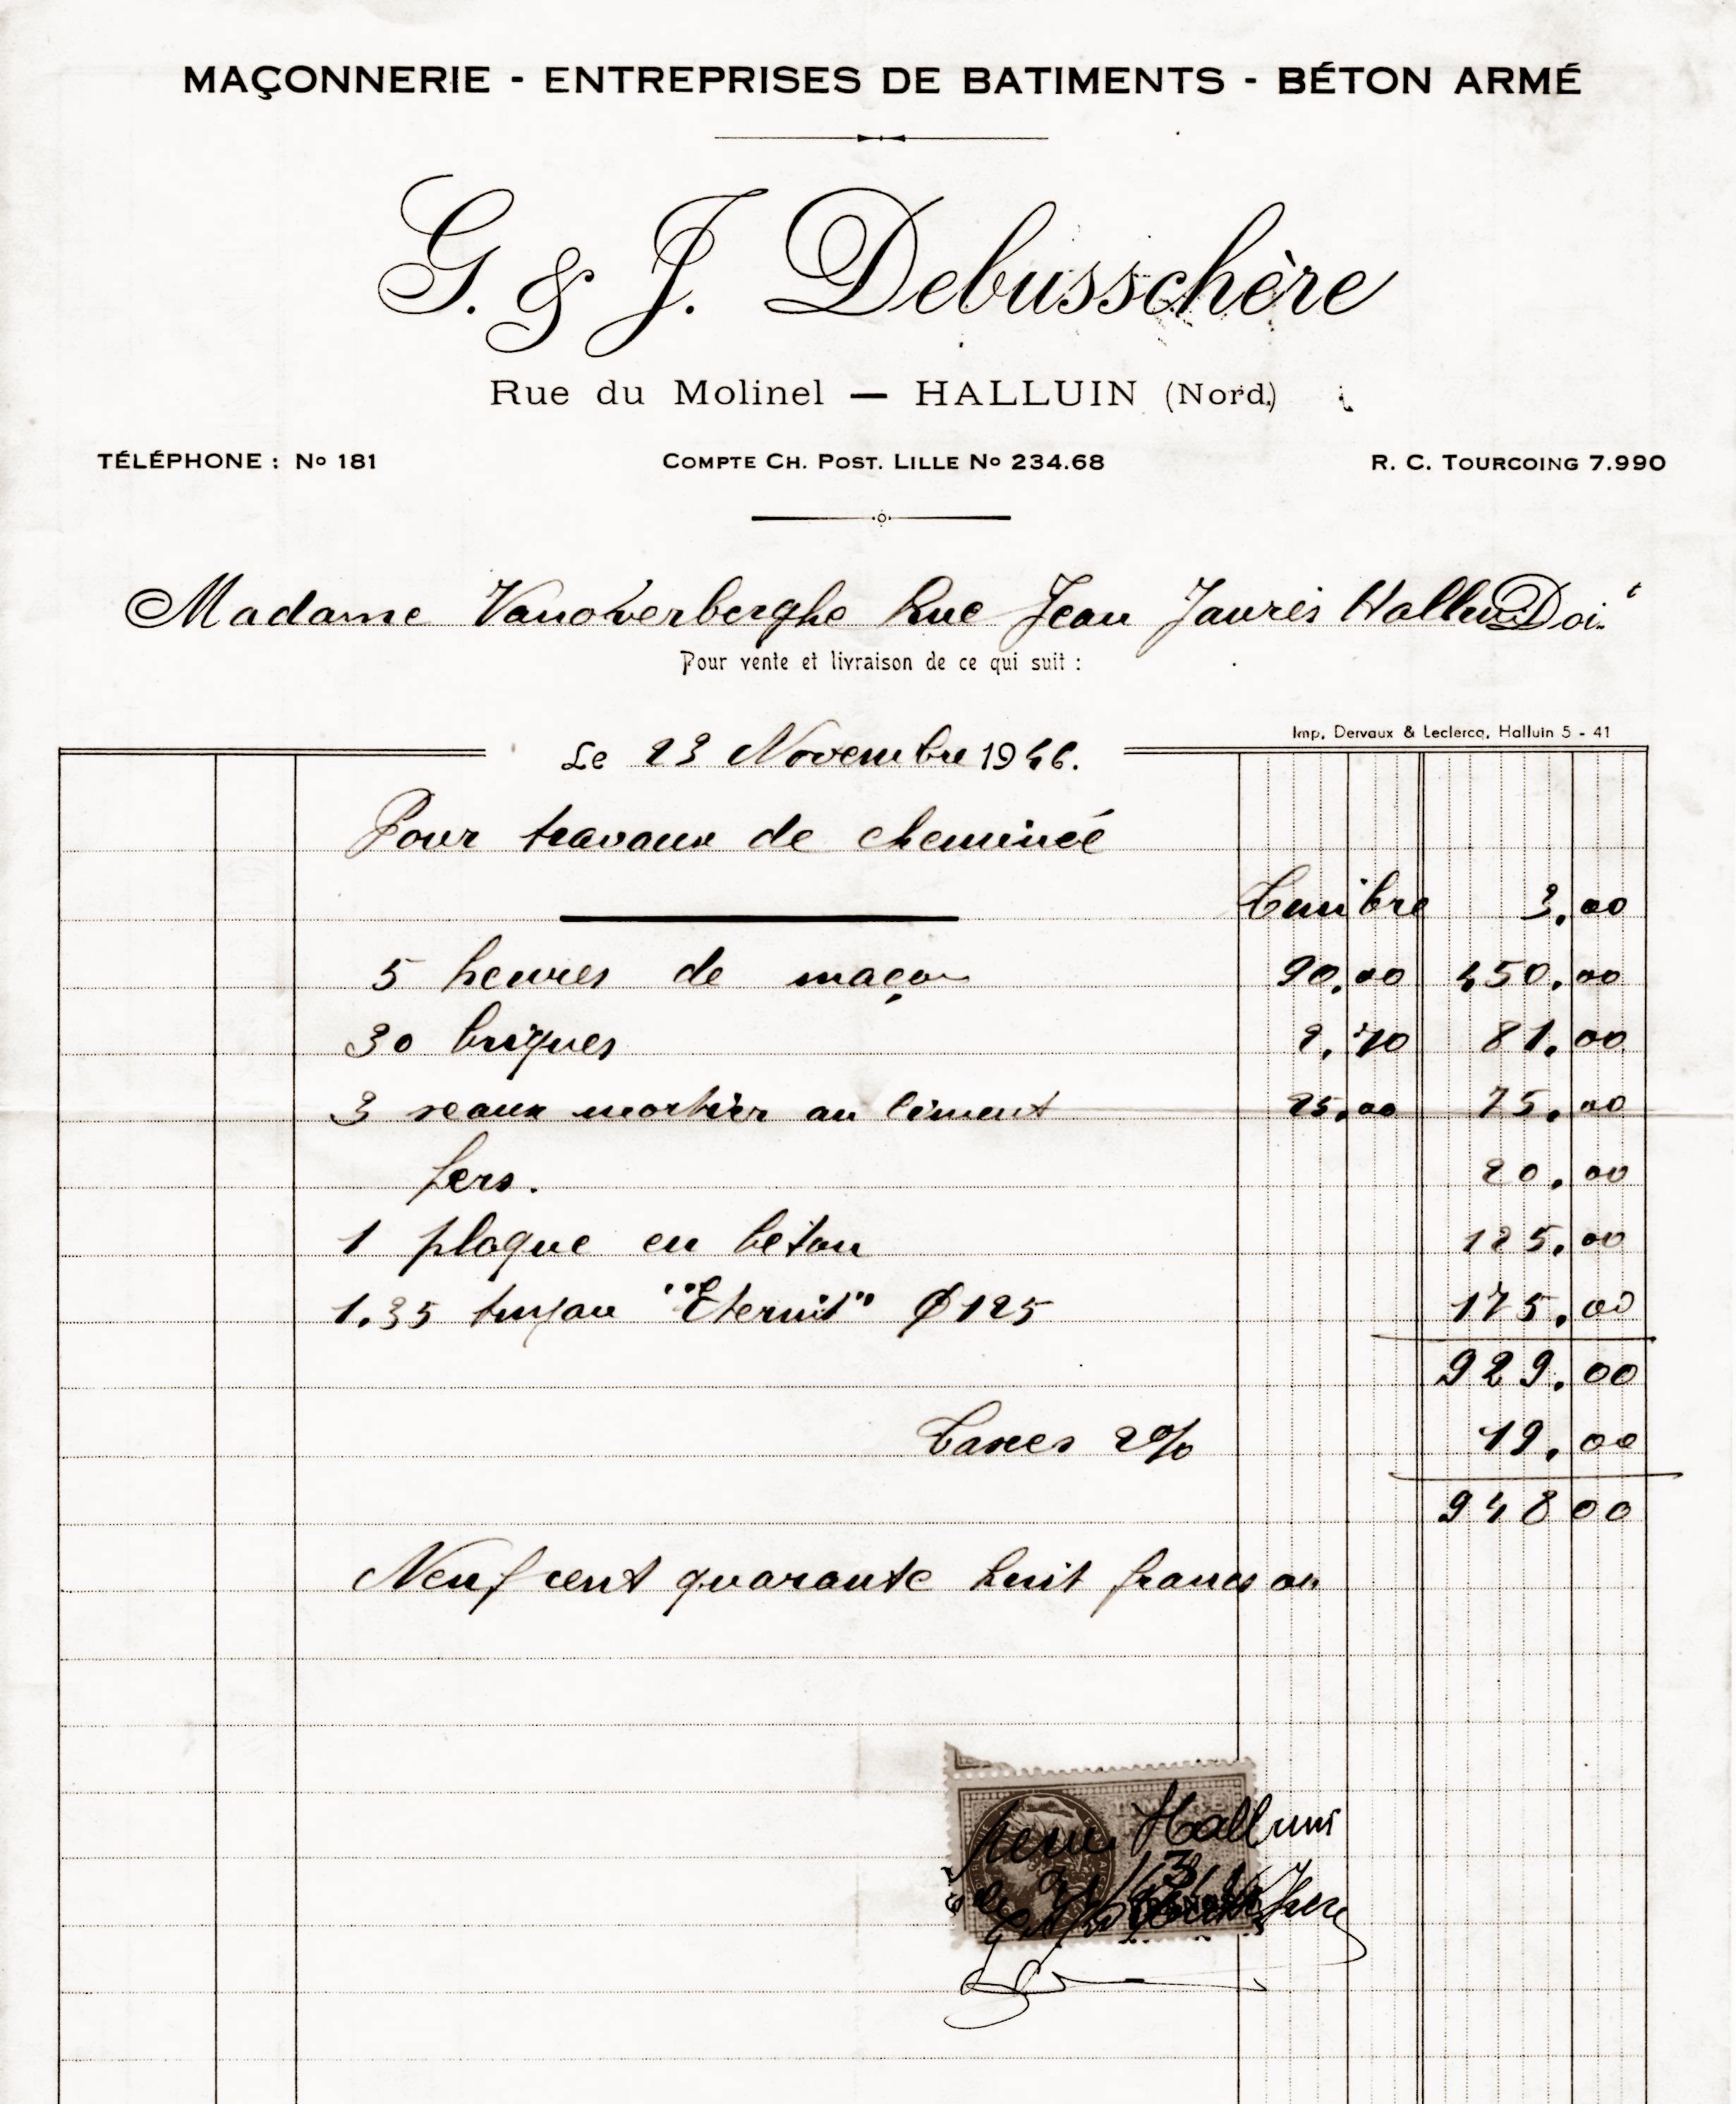 MAÇONNERIE - ENTREPRISES DE BATIMENTS - BÉTON ARMÉ
G. & J. Debusschère
Rue du Molinel — HALLUIN (Nord)
TÉLÉPHONE : No 181 COMPTE CH. POST. LILLE No 234.68 R. C. TOURCOING 7.990
Madame Vanoverberghe Rue Jean Jaurès Halluin Doit
Pour vente et livraison de ce qui suit :
Imp. Dervaux & Leclercq, Halluin 5 - 41
Le 23 Novembre 1946.
Pour travaux de cheminéé
Timbre 3,00
5 heures de maçon 90,00 450,00
30 briques 2,70 81,00
3 seaux mortier au ciment 25,00 75,00
fers. 20,00
1 plaque en béton 125,00
1.35 tuyau "Eternit" Ø 125 175,00
929,00
Taxes 2% 19,00
948 00
Neuf cent quarante huit francs
Halluin